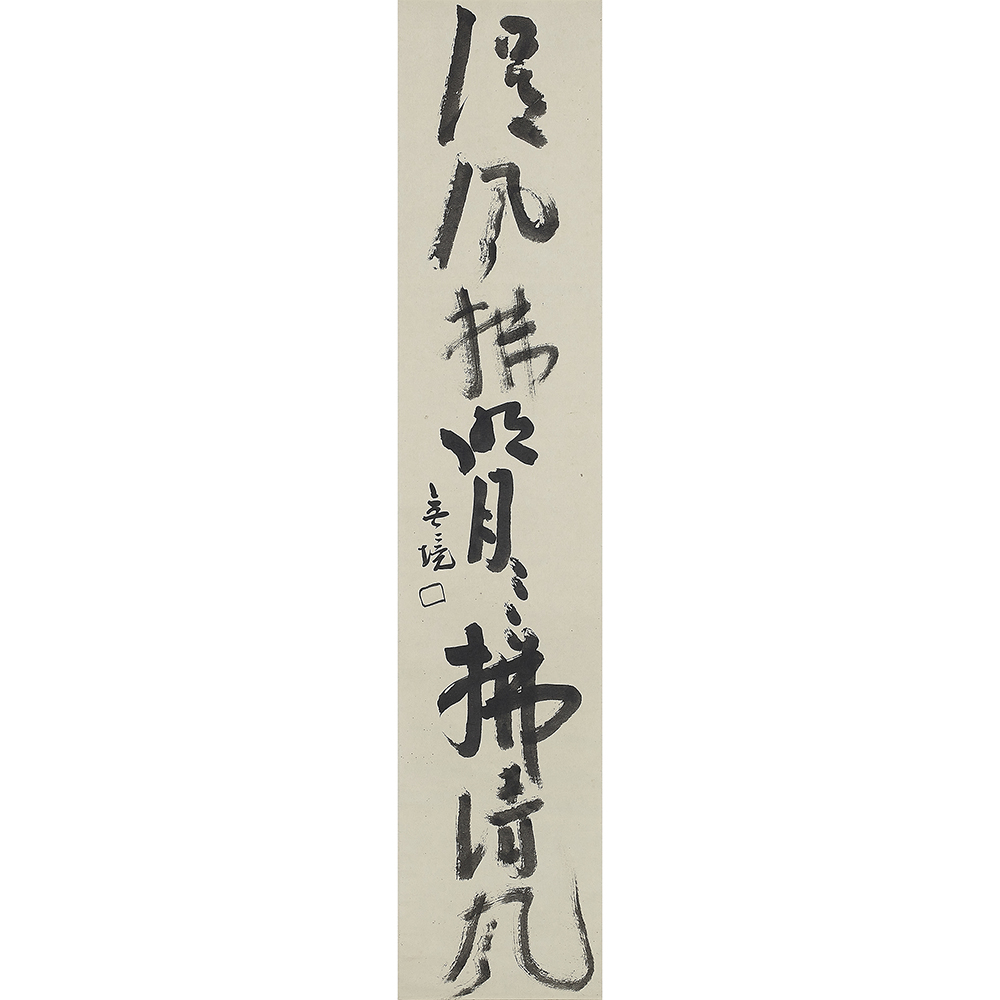 清風拂明月〻〻拂清風